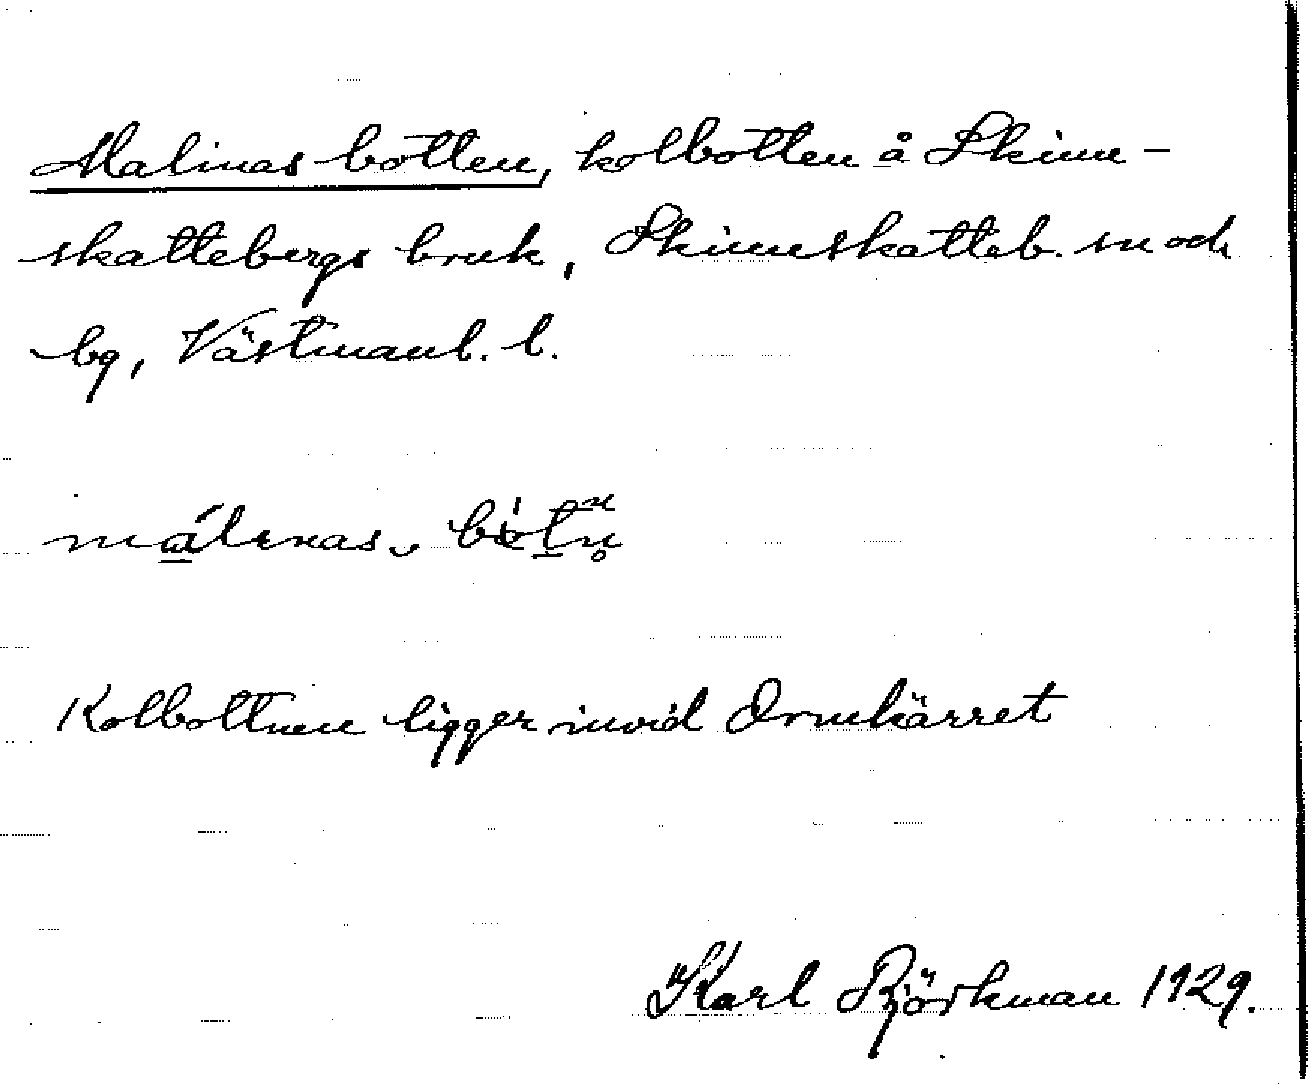 Malinas botten, kolbotten å Skinn-
skattebergs bruk, Skinnskatteb. sn och
bg, Västmanl. l.
Kolbottnen ligger invid Ormkärret
Karl Björkman 1929.